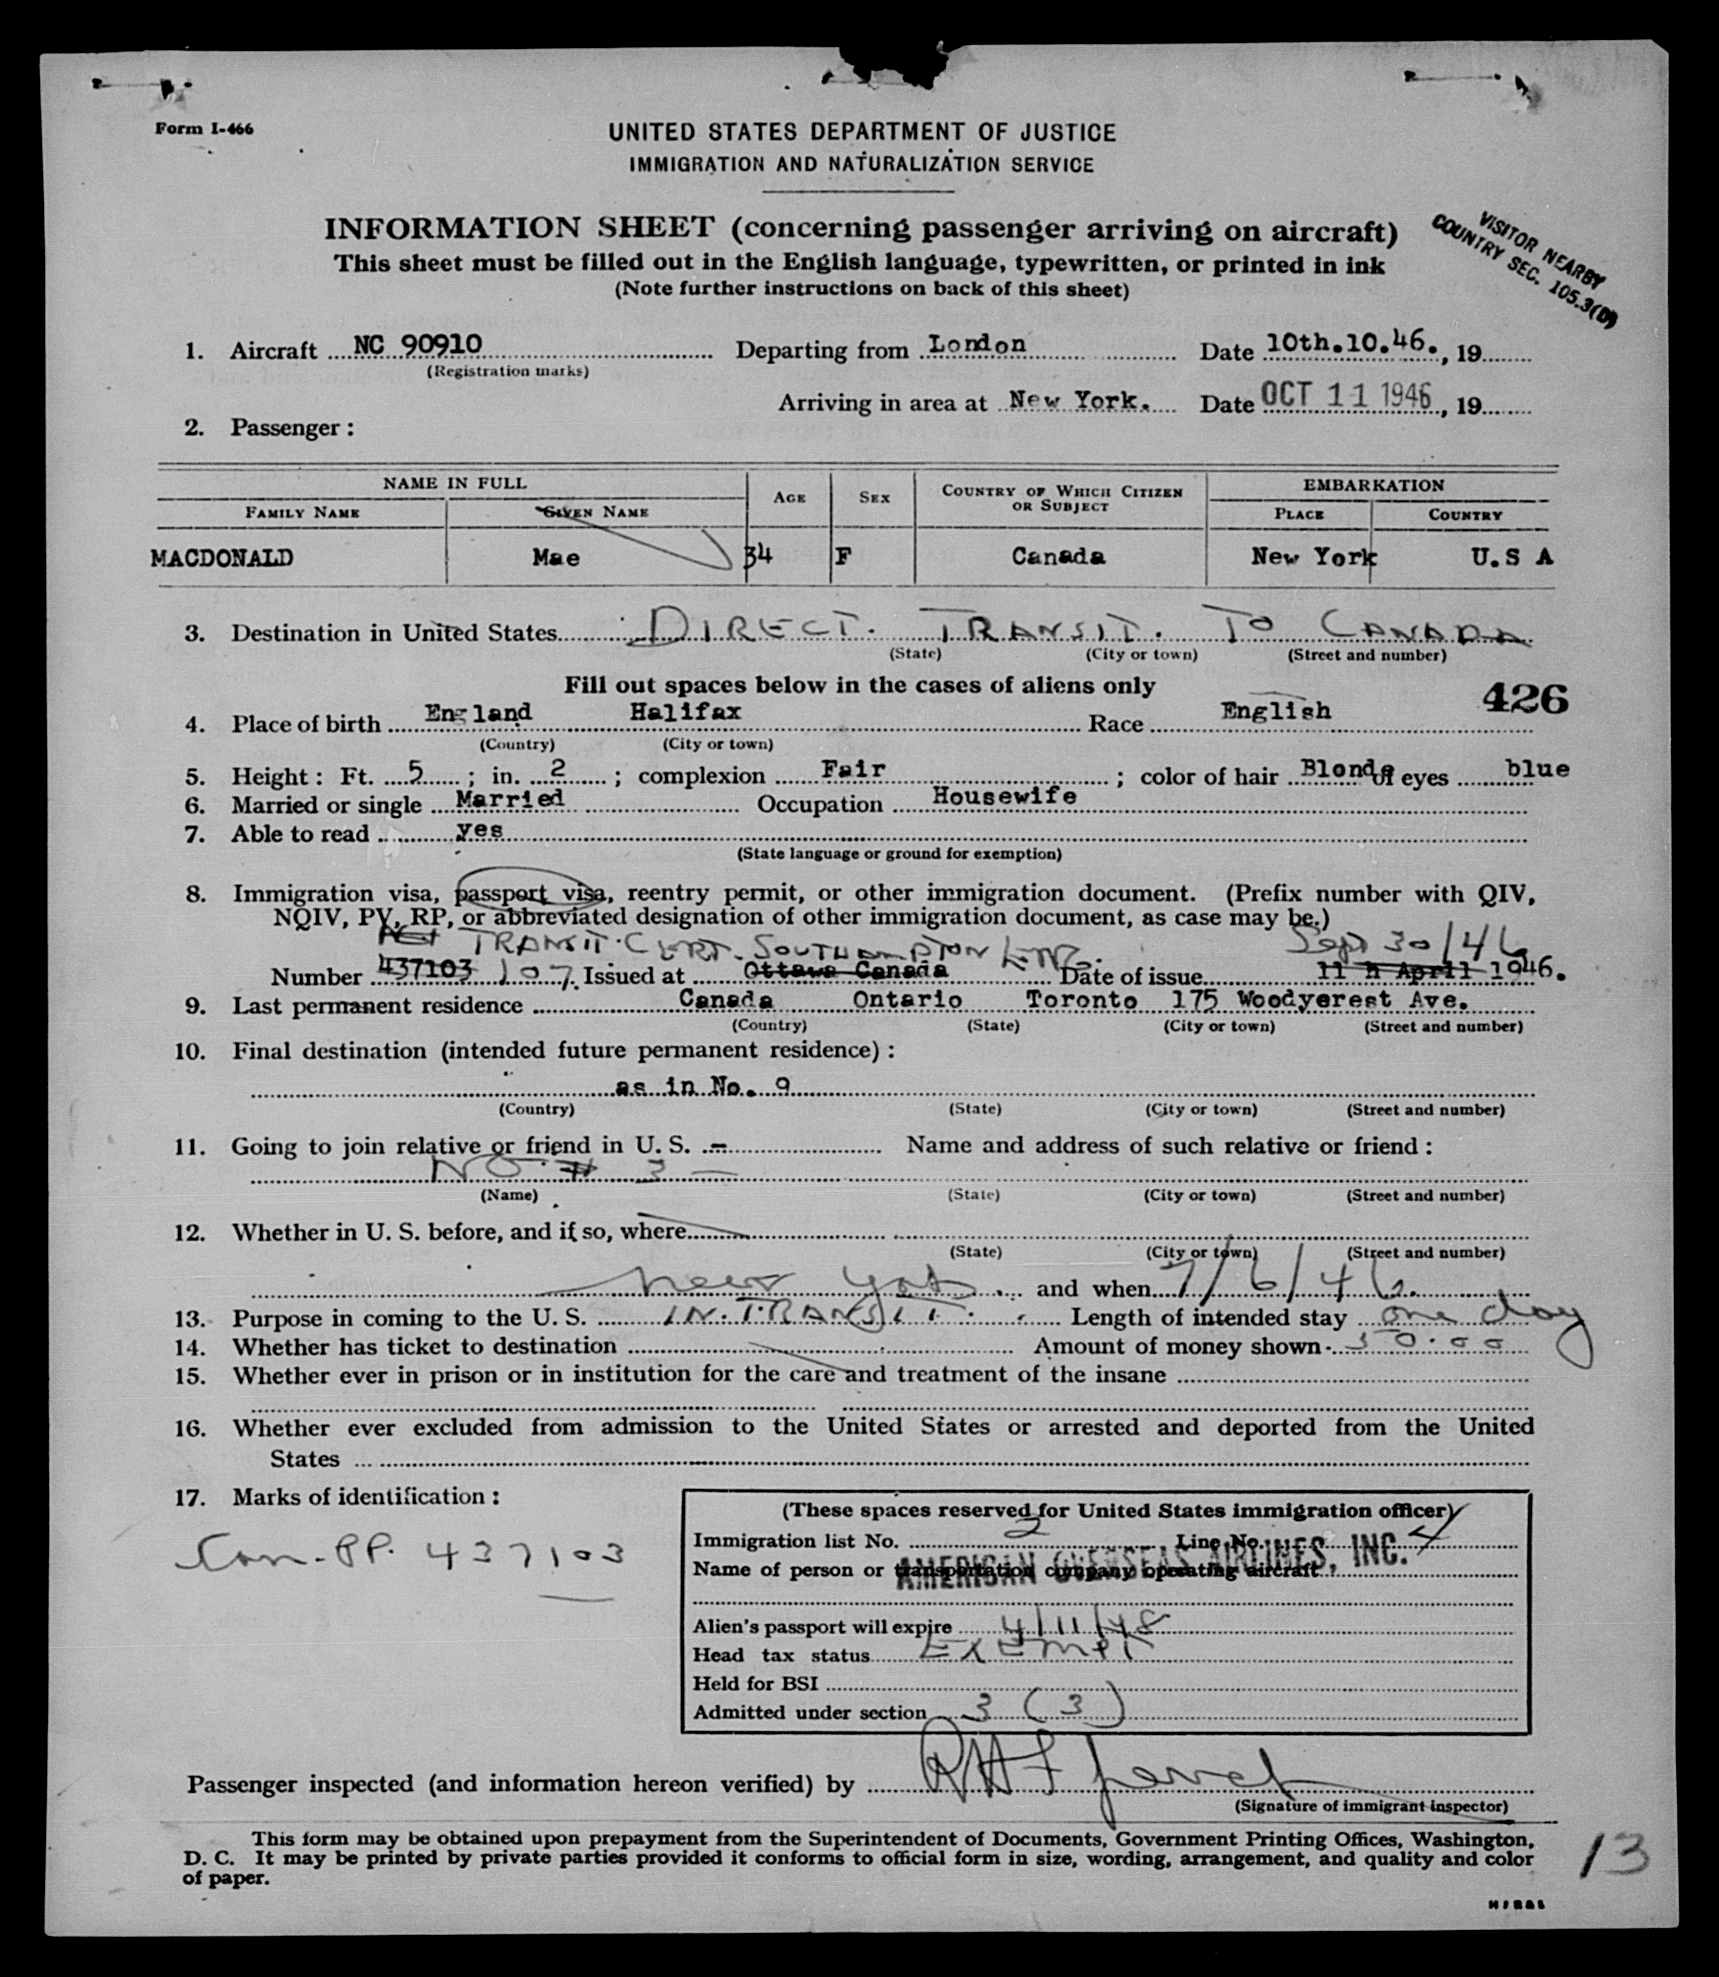 Form I-466
UNITED STATES DEPARTMENT OF JUSTICE
IMMIGRATION AND NATURALIZATION SERVICE
INFORMATION SHEET (concerning passenger arriving on aircraft)
This sheet must be filled out in the English language, typewritten, or printed in ink
(Note further instructions on back of this sheet)
VISITOR NEARBY
COUNTRY SEC. 105.3(D)
1. Aircraft NC 90910 Departing from London Date 10th.10.46., 19
(Registration marks)
Arriving in area at New York. Date OCT 11 1946, 19
2. Passenger:
NAME IN FULL AGE SEX COUNTRY OF WHICH CITIZEN OR SUBJECT EMBARKATION
FAMILY NAME GIVEN NAME PLACE COUNTRY
MACDONALD Mae 34 F Canada New York U.S A
3. Destination in United States DIRECT. TRANSIT. TO CANADA
(State) (City or town) (Street and number)
Fill out spaces below in the cases of aliens only
426
4. Place of birth England Halifax Race English
(Country) (City or town)
5. Height: Ft. 5; in. 2; complexion Fair; color of hair Blonde of eyes blue
6. Married or single Married Occupation Housewife
7. Able to read yes
(State language or ground for exemption)
8. Immigration visa, passport visa, reentry permit, or other immigration document. (Prefix number with QIV,
NQIV, PV, RP, or abbreviated designation of other immigration document, as case may be.)
TRANSIT. CERT. SOUTHAMPTON Sept 30/46
Number 437103 107. Issued at Ottawa Canada Date of issue 11 h April 1946.
9. Last permanent residence Canada Ontario Toronto 175 Woodyerest Ave.
(Country) (State) (City or town) (Street and number)
10. Final destination (intended future permanent residence):
as in No. 9
(Country) (State) (City or town) (Street and number)
11. Going to join relative or friend in U. S. - Name and address of such relative or friend:
NO # 3 —
(Name) (State) (City or town) (Street and number)
12. Whether in U. S. before, and if so, where
(State) (City or town) (Street and number)
New York and when 7/6/46.
13. Purpose in coming to the U. S. IN. TRANSIT. Length of intended stay one day
14. Whether has ticket to destination Amount of money shown 50.00
15. Whether ever in prison or in institution for the care and treatment of the insane
16. Whether ever excluded from admission to the United States or arrested and deported from the United
States
17. Marks of identification:
Can. PP. 437103
(These spaces reserved for United States immigration officer)
Immigration list No. 2 Line No. 4
AMERICAN OVERSEAS AIRLINES, INC.
Name of person or transportation company operating aircraft
Alien's passport will expire 4/11/48
Head tax status EXEMPT
Held for BSI
Admitted under section 3 (3)
Passenger inspected (and information hereon verified) by
(Signature of immigrant inspector)
This form may be obtained upon prepayment from the Superintendent of Documents, Government Printing Offices, Washington,
D. C. It may be printed by private parties provided it conforms to official form in size, wording, arrangement, and quality and color
of paper.
13